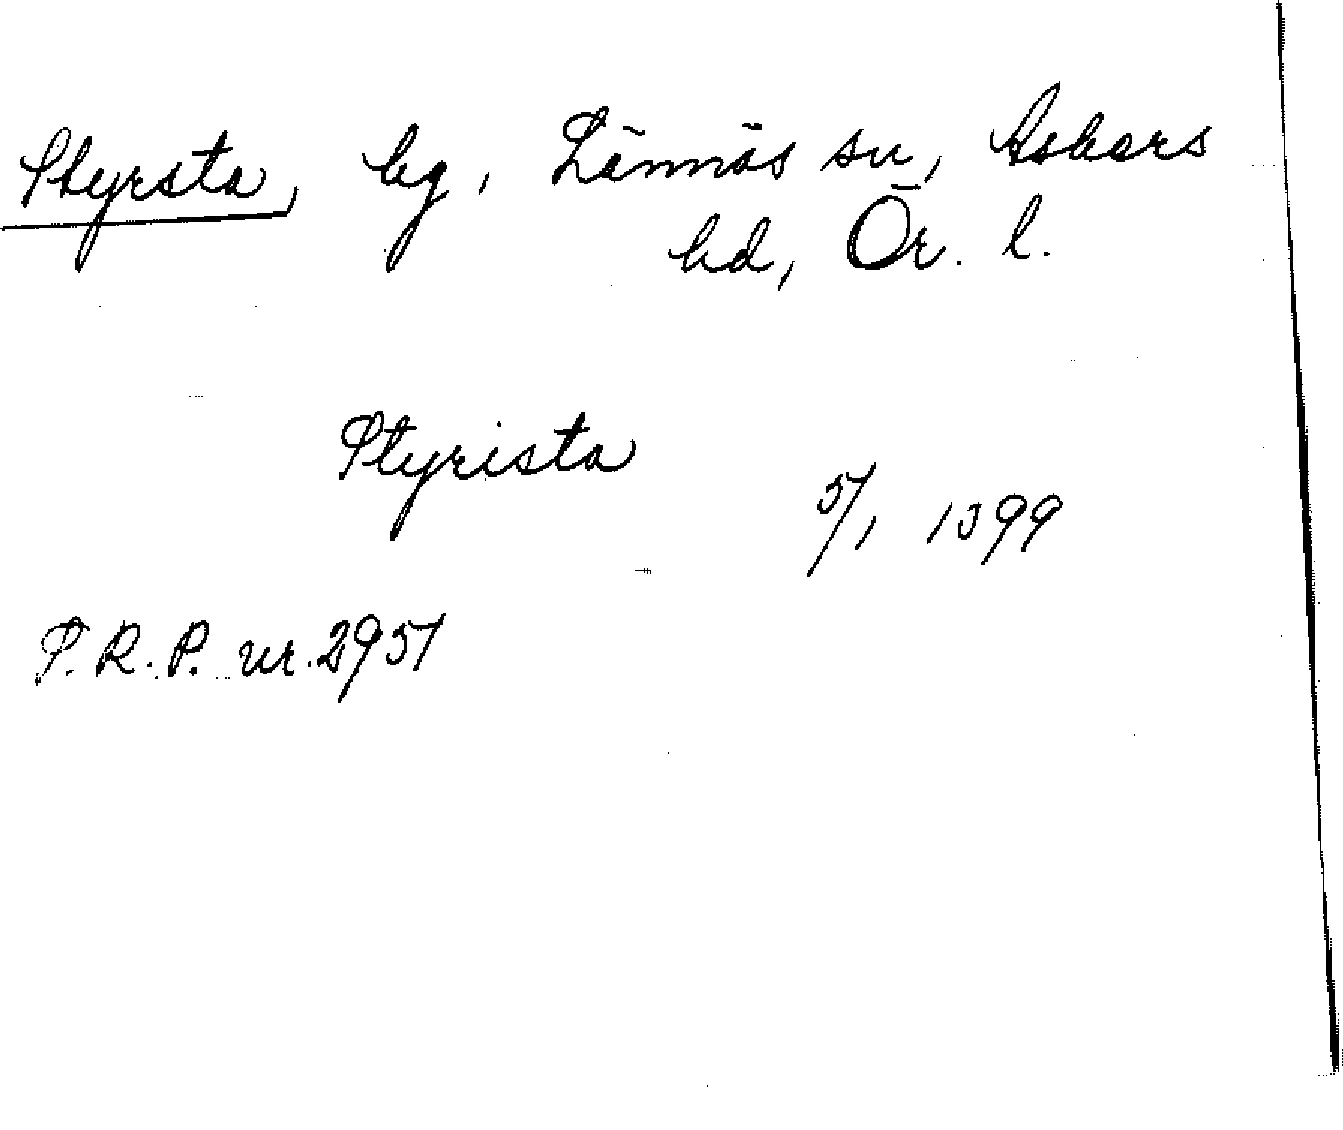 Styrsta, by, Lännäs sn, Askers
hd, Ör. l.
Styrista
5/1 1399
S.R.P. nr. 2951